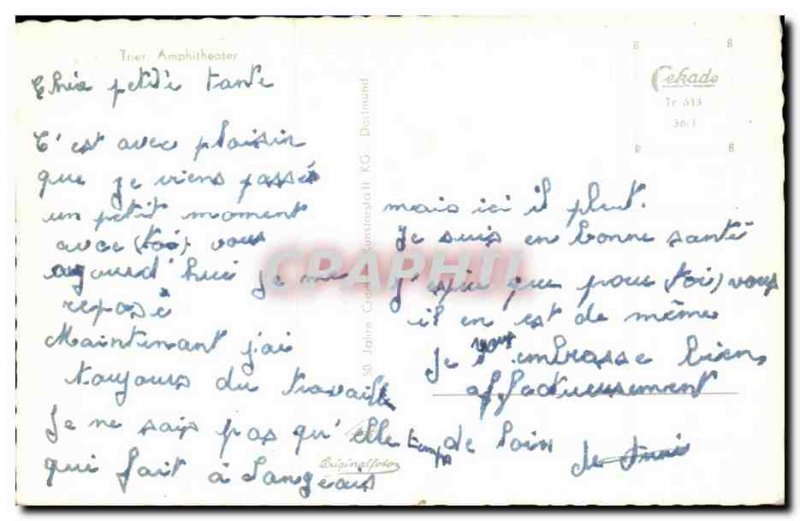 Trier Amphitheater
Chère petite tante
C'est avec plaisir
que je viens passé
un petit moment
avec (toi) vous
aujourd'hui je me
reposé
Maintenant j'ai
toujours du travaille
Je ne sais pas qu'elle temps
qui fait à Langeais
mais ici il pleut.
Je suis en bonne santé
J'espère que pour (toi) vous
il en est de même
Je vous embrasse bien
affactueusement
de loin
50 Jahre Dortmund
KG.
Originalfoto
Cekade
Tr 613
CPAPHIL